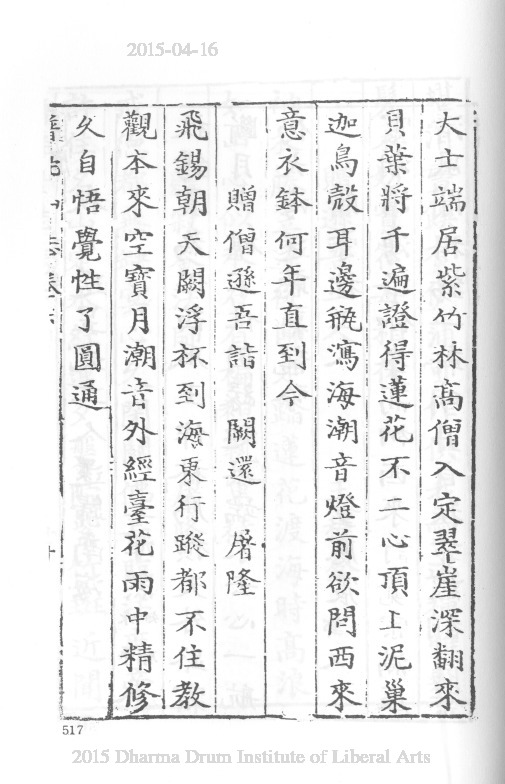 2015-04-16
大士端居紫竹林高僧入定翠崖深翻來
貝葉將千遍證得蓮花不二心頂上泥巢
迦鳥殼耳邊瓶瀉海潮音燈前欲問西來
意衣鉢何年直到今
贈僧遜吾詣 闕還 屠隆
飛錫朝天闕浮杯到海東行蹤都不住教
觀本來空寶月潮音外經臺花雨中精修
久自悟覺性了圓通
517
2015 Dharma Drum Institute of Liberal Arts